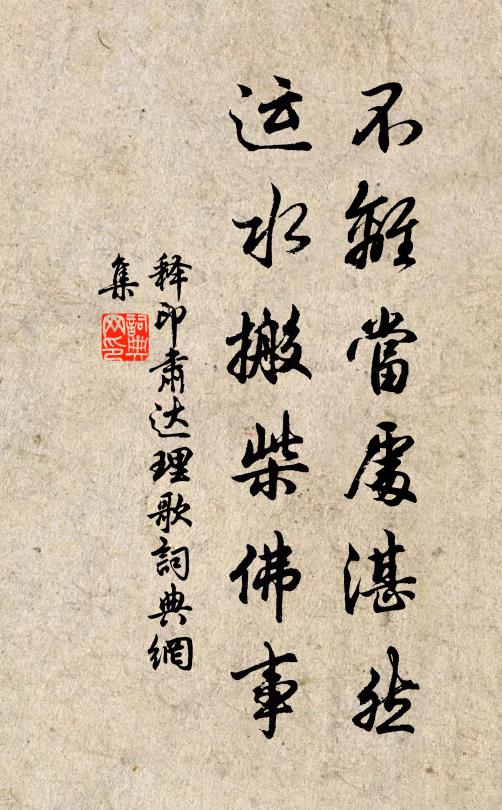 不離當處湛然
运水搬柴佛事
释印肃达理歌詞典網
集
詞典
网印